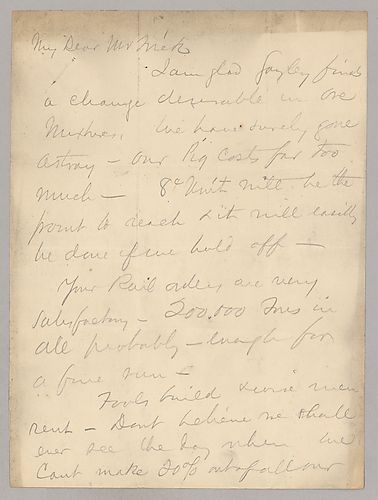 My Dear Mr Frick
I am glad Gayley finds
a change desirable in Ore
Mixtures. We have surely gone
astray — our Pig costs far too
much — 8c Unit will be the
point to reach & it will easily
be done if we hold off —
Your Rail orders are very
satisfactory — 200.000 Tons in
all probably — enough for
a fine run —
Fools build & wise men
rent — Dont believe we shall
ever see the day when we
Cant make 20% out of all our